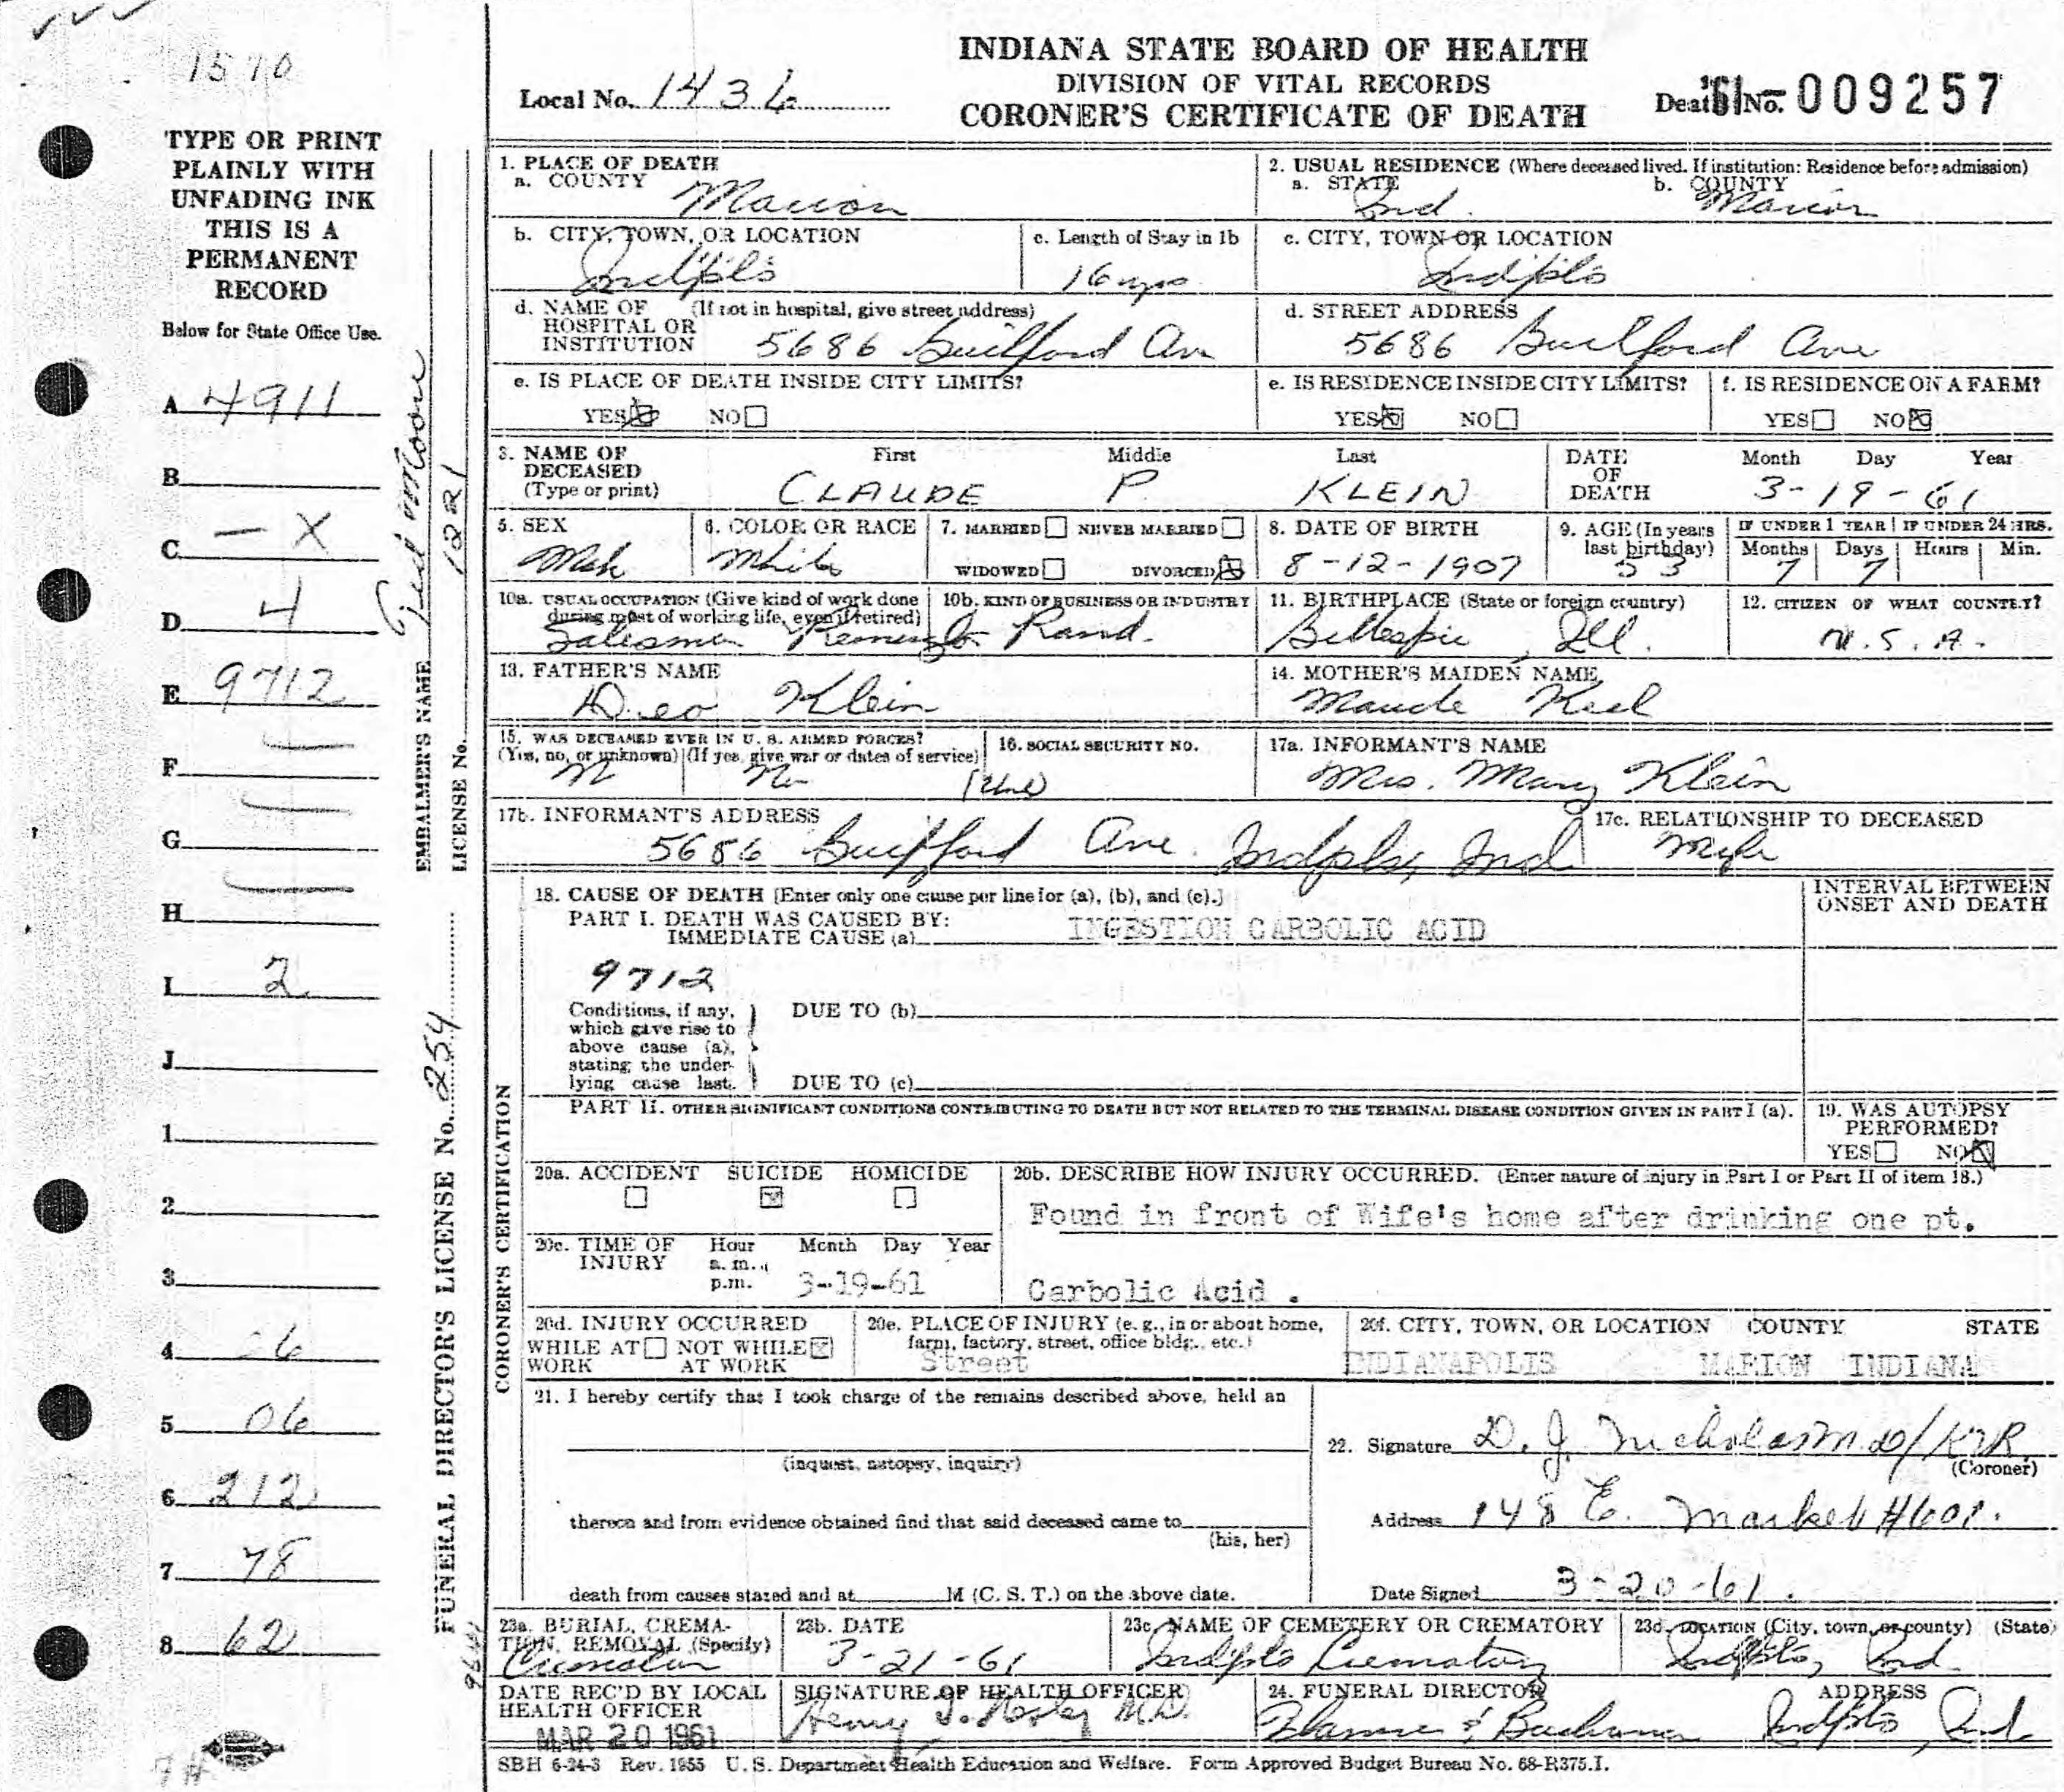 1570
INDIANA STATE BOARD OF HEALTH
DIVISION OF VITAL RECORDS
CORONER'S CERTIFICATE OF DEATH
Local No. 1436
Death No. 61- 009257
TYPE OR PRINT
PLAINLY WITH
UNFADING INK
THIS IS A
PERMANENT
RECORD
Below for State Office Use.
A 4911
B
C — X
D 4
E 9712
F
G
H
I 2
J
1
2
3
4 26
5 06
6 212
7 78
8 62
EMBALMER'S NAME Moore
LICENSE No. 1221
FUNERAL DIRECTOR'S LICENSE No. 254
1. PLACE OF DEATH
a. COUNTY Marion
2. USUAL RESIDENCE (Where deceased lived. If institution: Residence before admission)
a. STATE Ind. b. COUNTY Marion
b. CITY, TOWN, OR LOCATION Indpls
c. Length of Stay in 1b 16 yrs
c. CITY, TOWN OR LOCATION Indpls
d. NAME OF HOSPITAL OR INSTITUTION (If not in hospital, give street address) 5686 Guilford Ave
d. STREET ADDRESS 5686 Guilford Ave
e. IS PLACE OF DEATH INSIDE CITY LIMITS?
YES NO
e. IS RESIDENCE INSIDE CITY LIMITS?
YES NO
f. IS RESIDENCE ON A FARM?
YES NO
3. NAME OF DECEASED (Type or print) First Middle Last
CLAUDE P. KLEIN
DATE OF DEATH Month Day Year
3-19-61
5. SEX Male
6. COLOR OR RACE White
7. MARRIED NEVER MARRIED
WIDOWED DIVORCED
8. DATE OF BIRTH 8-12-1907
9. AGE (In years last birthday) 53
IF UNDER 1 YEAR IF UNDER 24 HRS.
Months 7 Days 7 Hours Min.
10a. USUAL OCCUPATION (Give kind of work done during most of working life, even if retired) Salesman
10b. KIND OF BUSINESS OR INDUSTRY Remington Rand.
11. BIRTHPLACE (State or foreign country) Gillespie, Ill.
12. CITIZEN OF WHAT COUNTRY? U.S.A.
13. FATHER'S NAME Klein
14. MOTHER'S MAIDEN NAME Maude
15. WAS DECEASED EVER IN U. S. ARMED FORCES?
(Yes, no, or unknown) (If yes, give war or dates of service)
16. SOCIAL SECURITY NO.
17a. INFORMANT'S NAME Mrs. Mary Klein
17b. INFORMANT'S ADDRESS 5686 Guilford Ave. Indpls, Ind
17c. RELATIONSHIP TO DECEASED Wife
18. CAUSE OF DEATH [Enter only one cause per line for (a), (b), and (c).]
INTERVAL BETWEEN ONSET AND DEATH
PART I. DEATH WAS CAUSED BY:
IMMEDIATE CAUSE (a) INGESTION CARBOLIC ACID
9712
Conditions, if any, which gave rise to above cause (a), stating the underlying cause last.
DUE TO (b)
DUE TO (c)
PART II. OTHER SIGNIFICANT CONDITIONS CONTRIBUTING TO DEATH BUT NOT RELATED TO THE TERMINAL DISEASE CONDITION GIVEN IN PART I (a).
19. WAS AUTOPSY PERFORMED?
YES NO
CORONER'S CERTIFICATION
20a. ACCIDENT SUICIDE HOMICIDE
20b. DESCRIBE HOW INJURY OCCURRED. (Enter nature of injury in Part I or Part II of item 18.)
Found in front of Wife's home after drinking one pt.
Carbolic Acid .
20c. TIME OF INJURY Hour Month Day Year
a. m.,
p.m. 3-19-61
20d. INJURY OCCURRED
WHILE AT WORK NOT WHILE AT WORK
20e. PLACE OF INJURY (e. g., in or about home, farm, factory, street, office bldg., etc.)
Street
20f. CITY, TOWN, OR LOCATION COUNTY STATE
INDIANAPOLIS MARION INDIANA
21. I hereby certify that I took charge of the remains described above, held an
(inquest, autopsy, inquiry)
thereon and from evidence obtained find that said deceased came to
(his, her)
death from causes stated and at M (C. S. T.) on the above date.
22. Signature D. J. Nicholas M D/KNR
(Coroner)
Address 148 E. Market #601.
Date Signed 3-20-61.
23a. BURIAL, CREMATION, REMOVAL (Specify) Cremation
23b. DATE 3-21-61
23c. NAME OF CEMETERY OR CREMATORY Indpls Crematory
23d. LOCATION (City, town, or county) (State) Indpls, Ind.
DATE REC'D BY LOCAL HEALTH OFFICER
MAR 20 1961
SIGNATURE OF HEALTH OFFICER Henry M.D.
24. FUNERAL DIRECTOR ADDRESS
Flanner & Buchanan Indpls, Ind.
SBH 6-24-3 Rev. 1955 U. S. Department Health Education and Welfare. Form Approved Budget Bureau No. 68-R375.I.